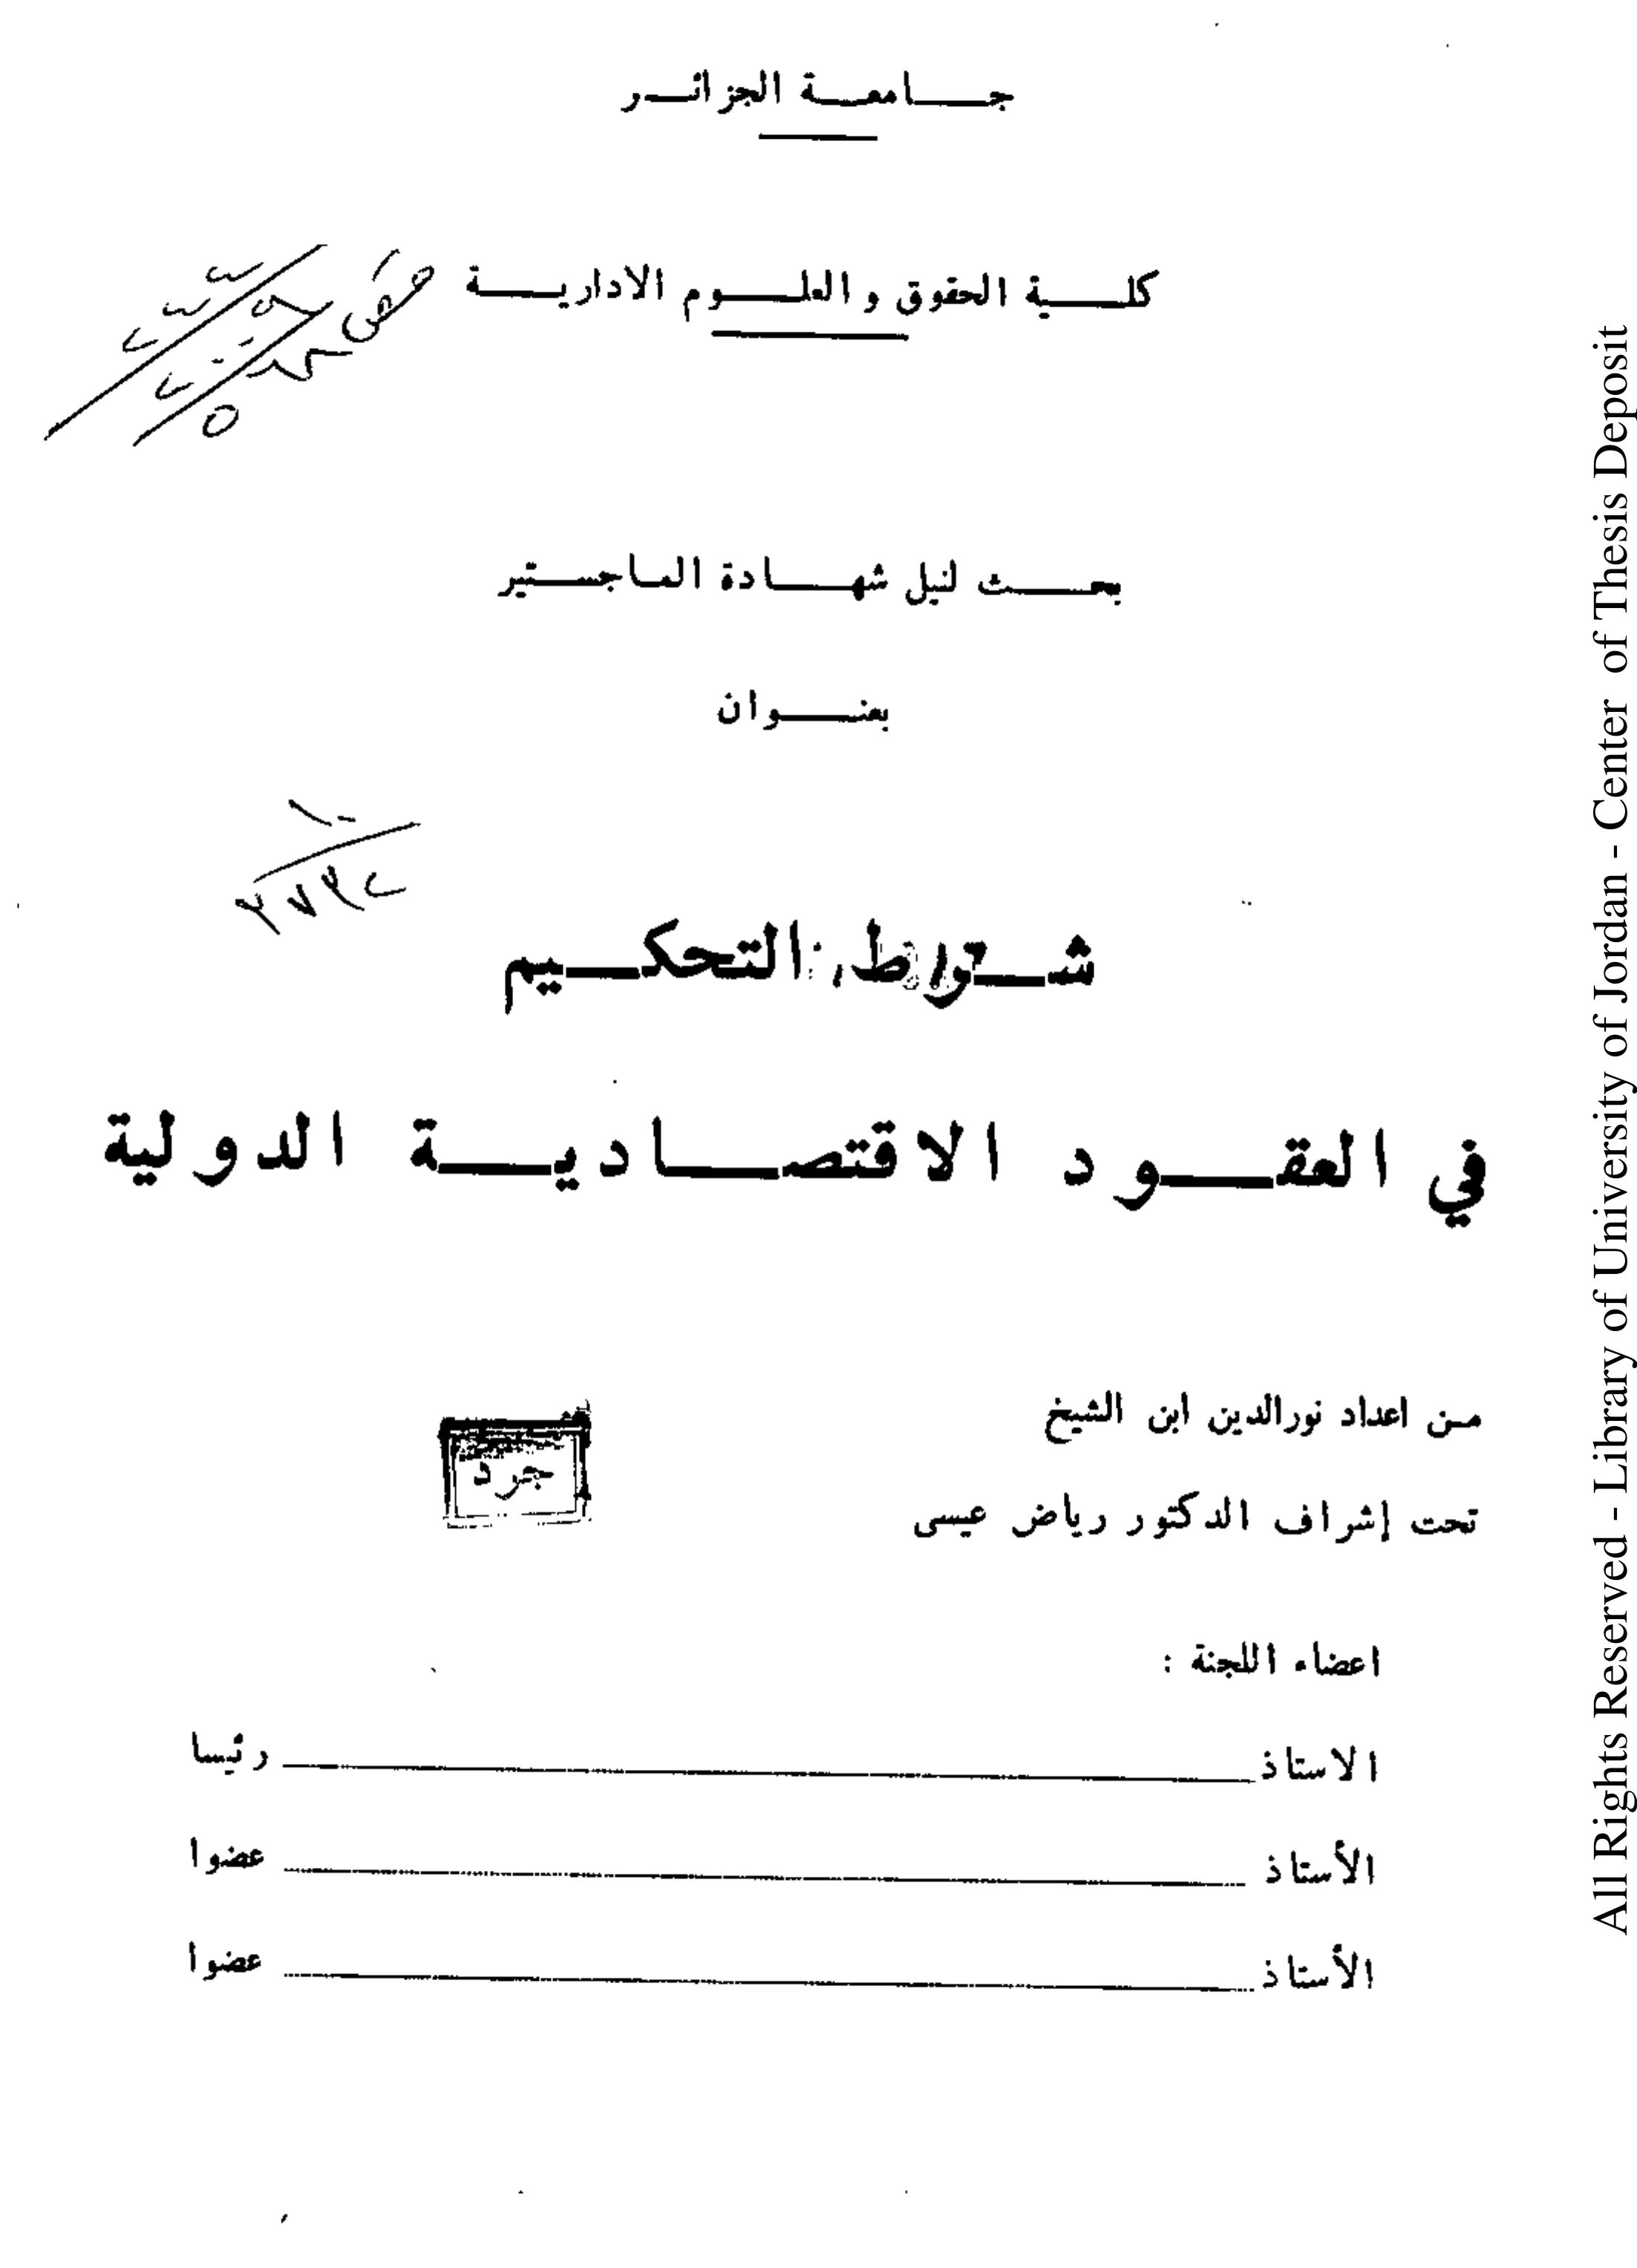 جامعة الجزائر
كلية الحقوق و العلوم الادارية
بحث لنيل شهادة الماجستير
بعنوان
التحكيم
في العقود الاقتصادية الدولية
من اعداد نورالدين ابن الشيخ
جرد
تحت إشراف الدكتور رياض عيسى
اعضاء اللجنة :
الاستاذ رئيسا
الأستاذ عضوا
الأستاذ عضوا
All Rights Reserved - Library of University of Jordan - Center of Thesis Deposit